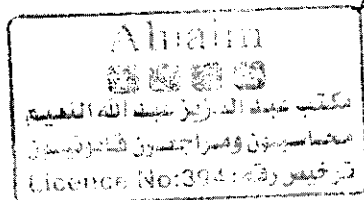 Alnaim
مكتب عبد العزيز عبد الله النعيم
محاسبون ومراجعون قانونيون
ترخيص رقم: 394 Licence No: